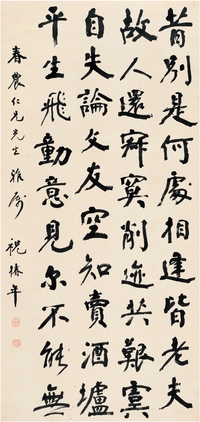 昔別是何處相逢皆老夫
故人還寂寞削迹共艱虞
自失論文友空知賣酒壚
平生飛動意見尔不能無
春農仁兄先生雅屬 祝椿年